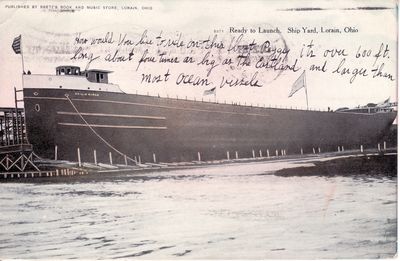 PUBLISHED BY BRETZ'S BOOK AND MUSIC STORE, LORAIN, OHIO
Ready to Launch. Ship Yard, Lorain, Ohio
How would You like to ride on this boat Peggy it's over 600 ft.
long about four times as big as the Eastland and larger than
most Ocean vessels